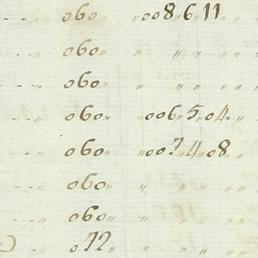 060 〃 〃 008 〃 6 〃 11
060 〃 〃 〃 〃
060 〃 〃 〃 〃
060 〃 〃 006 〃 5 〃 04 〃
060 〃 〃 007 〃 4 〃 08 〃
060 〃 〃 〃 〃
060 〃 〃 〃 〃
072 〃 〃 〃 〃